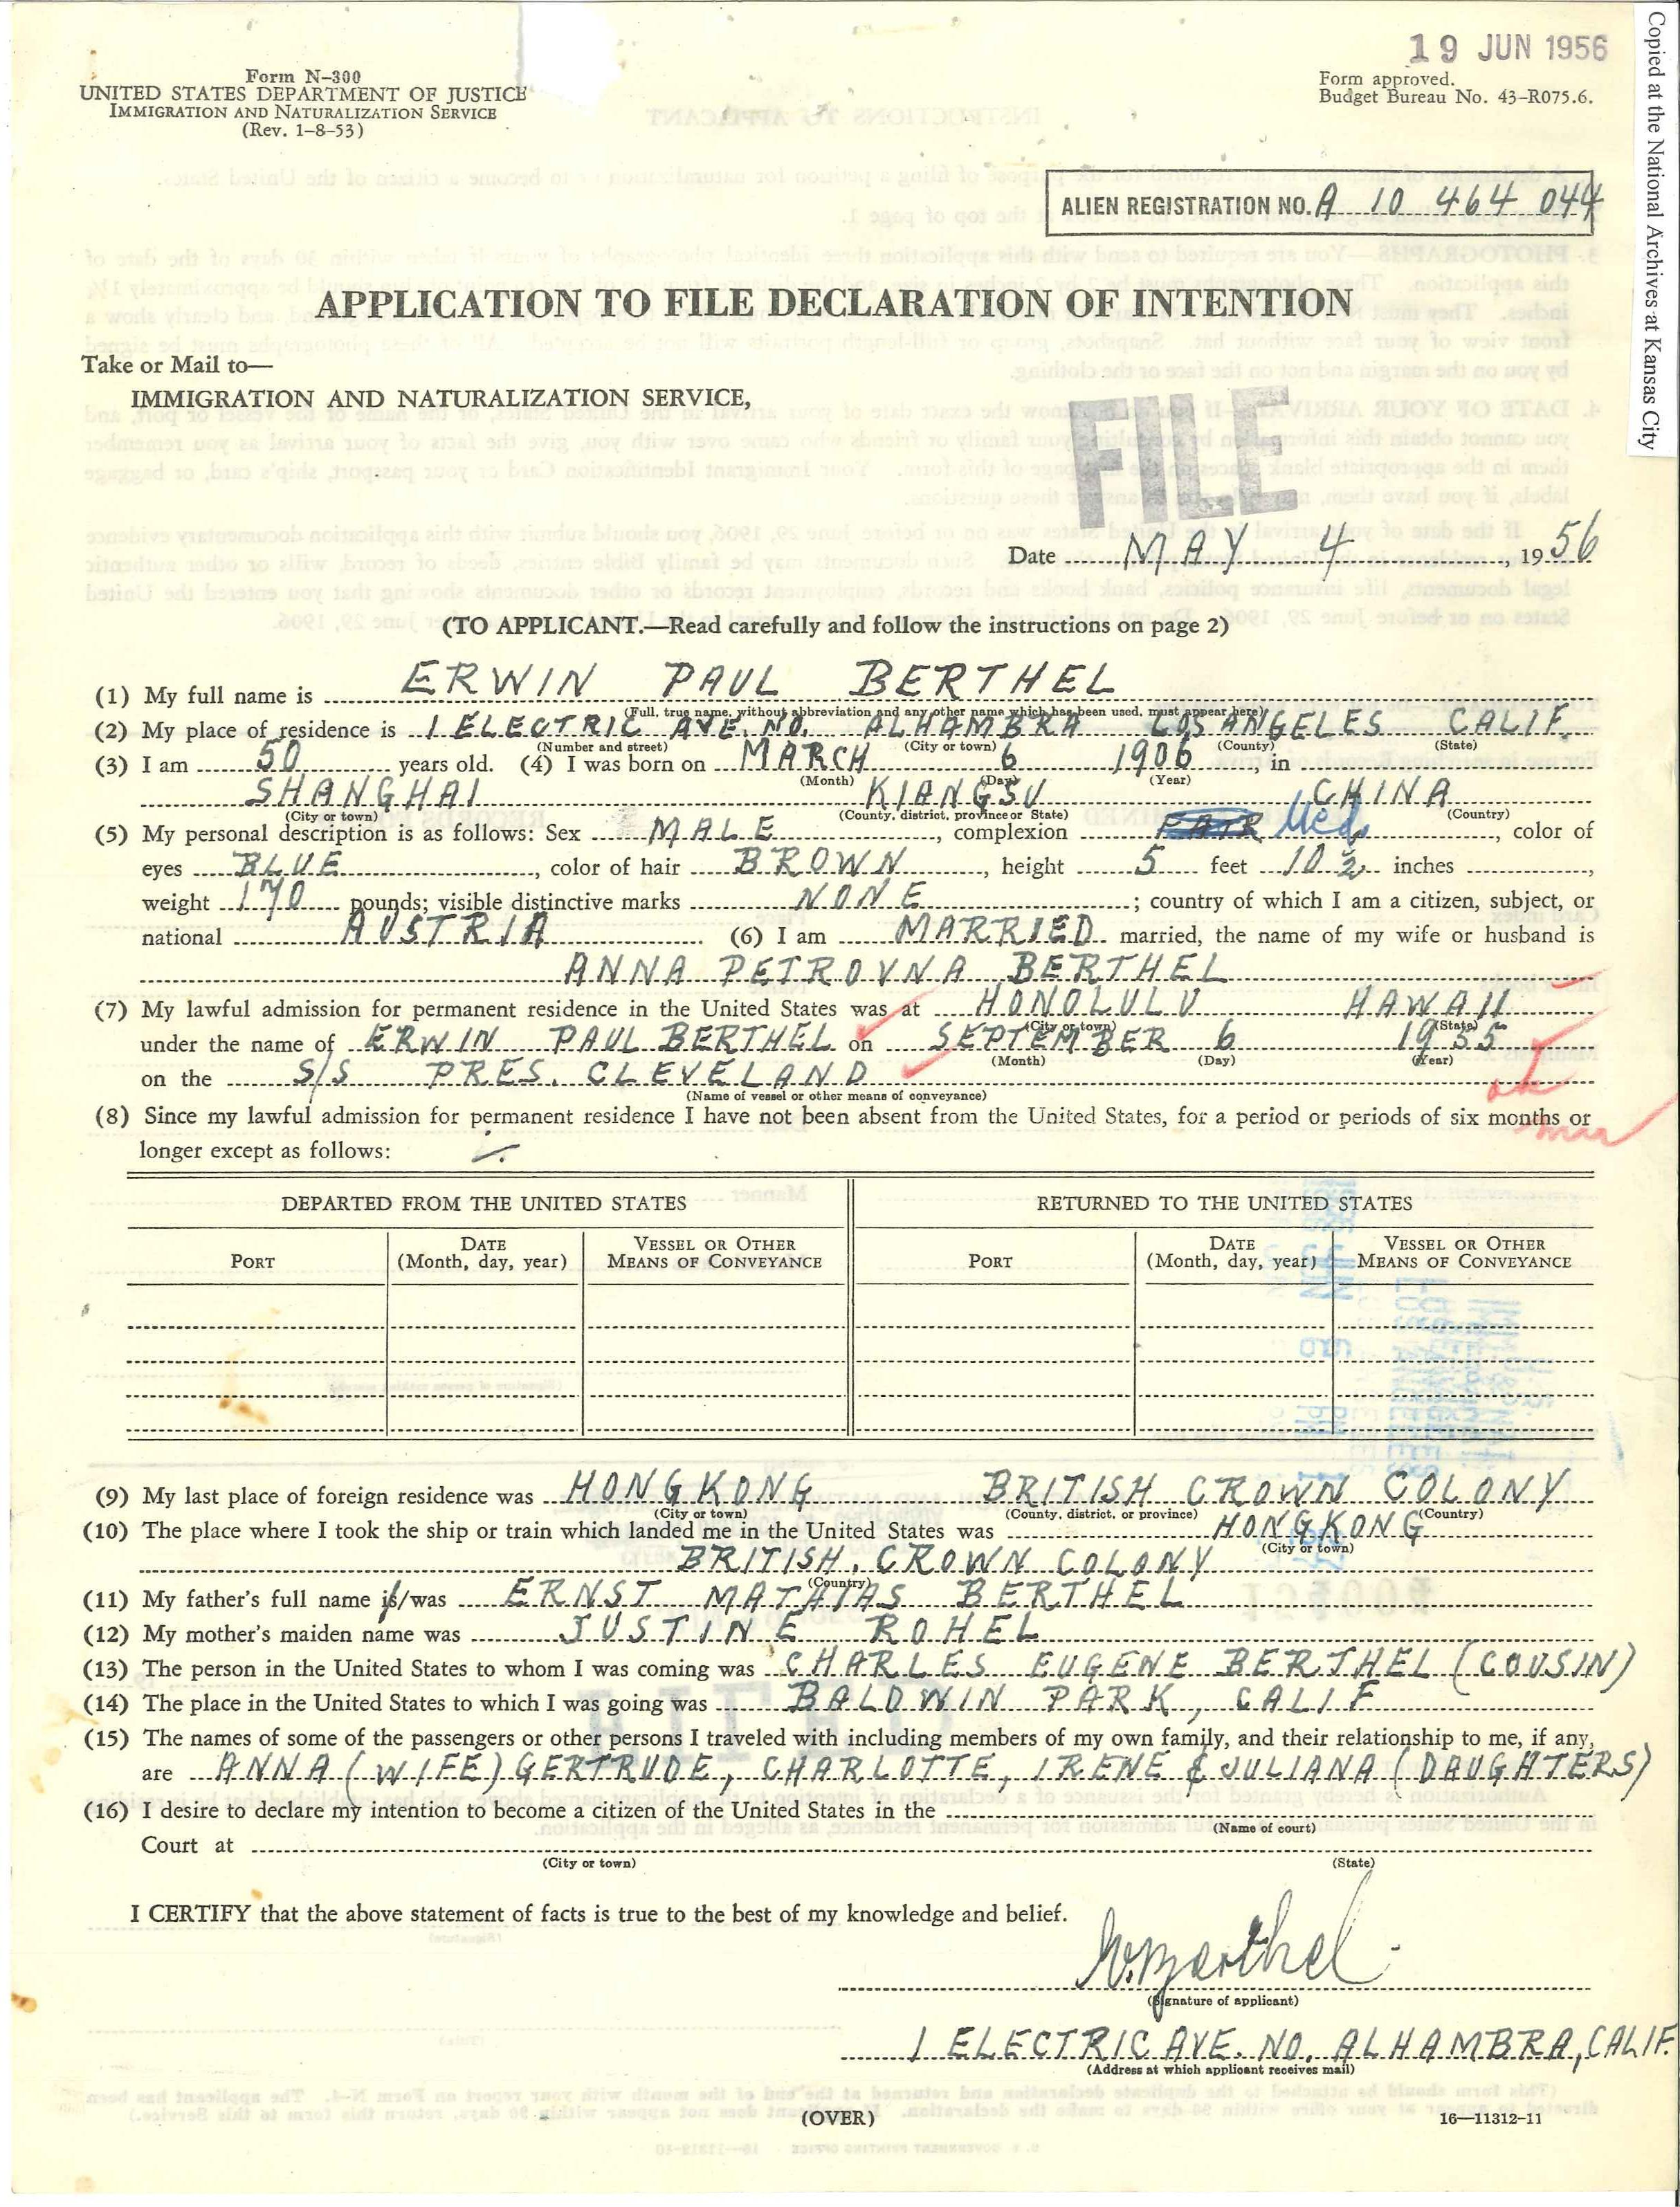 Copied at the National Archives at Kansas City
19 JUN 1956
Form N-300
UNITED STATES DEPARTMENT OF JUSTICE
IMMIGRATION AND NATURALIZATION SERVICE
(Rev. 1-8-53)
Form approved.
Budget Bureau No. 43-R075.6.
ALIEN REGISTRATION NO. A 10 464 044
APPLICATION TO FILE DECLARATION OF INTENTION
Take or Mail to—
IMMIGRATION AND NATURALIZATION SERVICE,
FILE
Date MAY 4, 1956
(TO APPLICANT.—Read carefully and follow the instructions on page 2)
(1) My full name is ERWIN PAUL BERTHEL
(Full, true name, without abbreviation and any other name which has been used, must appear here)
(2) My place of residence is 1 ELECTRIC AVE. NO. ALHAMBRA LOS ANGELES CALIF.
(Number and street) (City or town) (County) (State)
(3) I am 50 years old. (4) I was born on MARCH 6 1906, in
(Month) (Day) (Year)
SHANGHAI KIANGSU CHINA
(City or town) (County, district, province or State) (Country)
(5) My personal description is as follows: Sex MALE, complexion FAIR Med., color of
eyes BLUE, color of hair BROWN, height 5 feet 10 1/2 inches,
weight 170 pounds; visible distinctive marks NONE; country of which I am a citizen, subject, or
national AUSTRIA. (6) I am MARRIED married, the name of my wife or husband is
ANNA PETROVNA BERTHEL
(7) My lawful admission for permanent residence in the United States was at HONOLULU HAWAII
(City or town) (State)
under the name of ERWIN PAUL BERTHEL on SEPTEMBER 6 1955
(Month) (Day) (Year)
on the S/S PRES. CLEVELAND
(Name of vessel or other means of conveyance)
ok
(8) Since my lawful admission for permanent residence I have not been absent from the United States, for a period or periods of six months or
longer except as follows:
DEPARTED FROM THE UNITED STATES RETURNED TO THE UNITED STATES
PORT DATE (Month, day, year) VESSEL OR OTHER MEANS OF CONVEYANCE PORT DATE (Month, day, year) VESSEL OR OTHER MEANS OF CONVEYANCE
(9) My last place of foreign residence was HONGKONG BRITISH CROWN COLONY
(City or town) (County, district, or province) (Country)
(10) The place where I took the ship or train which landed me in the United States was HONGKONG
(City or town)
BRITISH CROWN COLONY
(Country)
(11) My father's full name is/was ERNST MATHIAS BERTHEL
(12) My mother's maiden name was JUSTINE ROHEL
(13) The person in the United States to whom I was coming was CHARLES EUGENE BERTHEL (COUSIN)
(14) The place in the United States to which I was going was BALDWIN PARK, CALIF
(15) The names of some of the passengers or other persons I traveled with including members of my own family, and their relationship to me, if any,
are ANNA (WIFE) GERTRUDE, CHARLOTTE, IRENE & JULIANA (DAUGHTERS)
(16) I desire to declare my intention to become a citizen of the United States in the
(Name of court)
Court at
(City or town) (State)
I CERTIFY that the above statement of facts is true to the best of my knowledge and belief.
E. Berthel
(Signature of applicant)
1 ELECTRIC AVE. NO. ALHAMBRA, CALIF.
(Address at which applicant receives mail)
(OVER)
16—11312-11